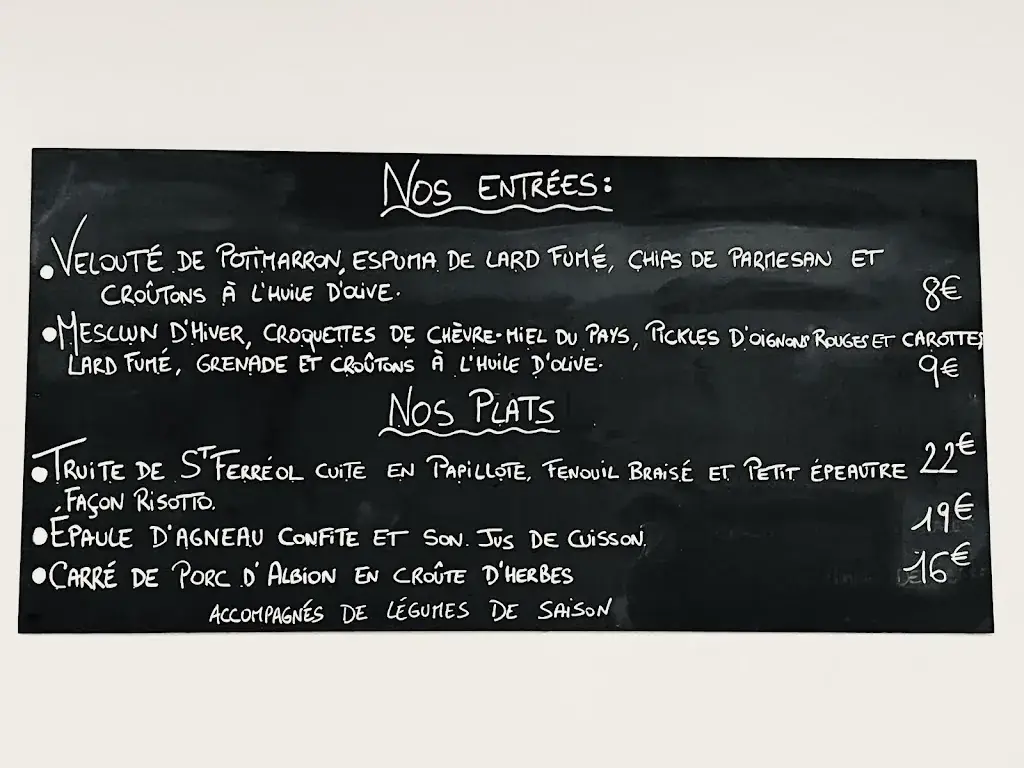 Nos entrées:
• Velouté de Potimarron, espuma de lard fumé, chips de parmesan et
croûtons à l'huile d'olive. 8€
• Mesclun d'hiver, croquettes de chèvre-miel du pays, pickles d'oignons rouges et carottes,
lard fumé, grenade et croûtons à l'huile d'olive. 9€
Nos Plats
• Truite de St Ferréol cuite en papillote, fenouil braisé et petit épeautre 22€
façon risotto.
• Épaule d'agneau confite et son jus de cuisson. 19€
• Carré de porc d'Albion en croûte d'herbes 16€
accompagnés de légumes de saison